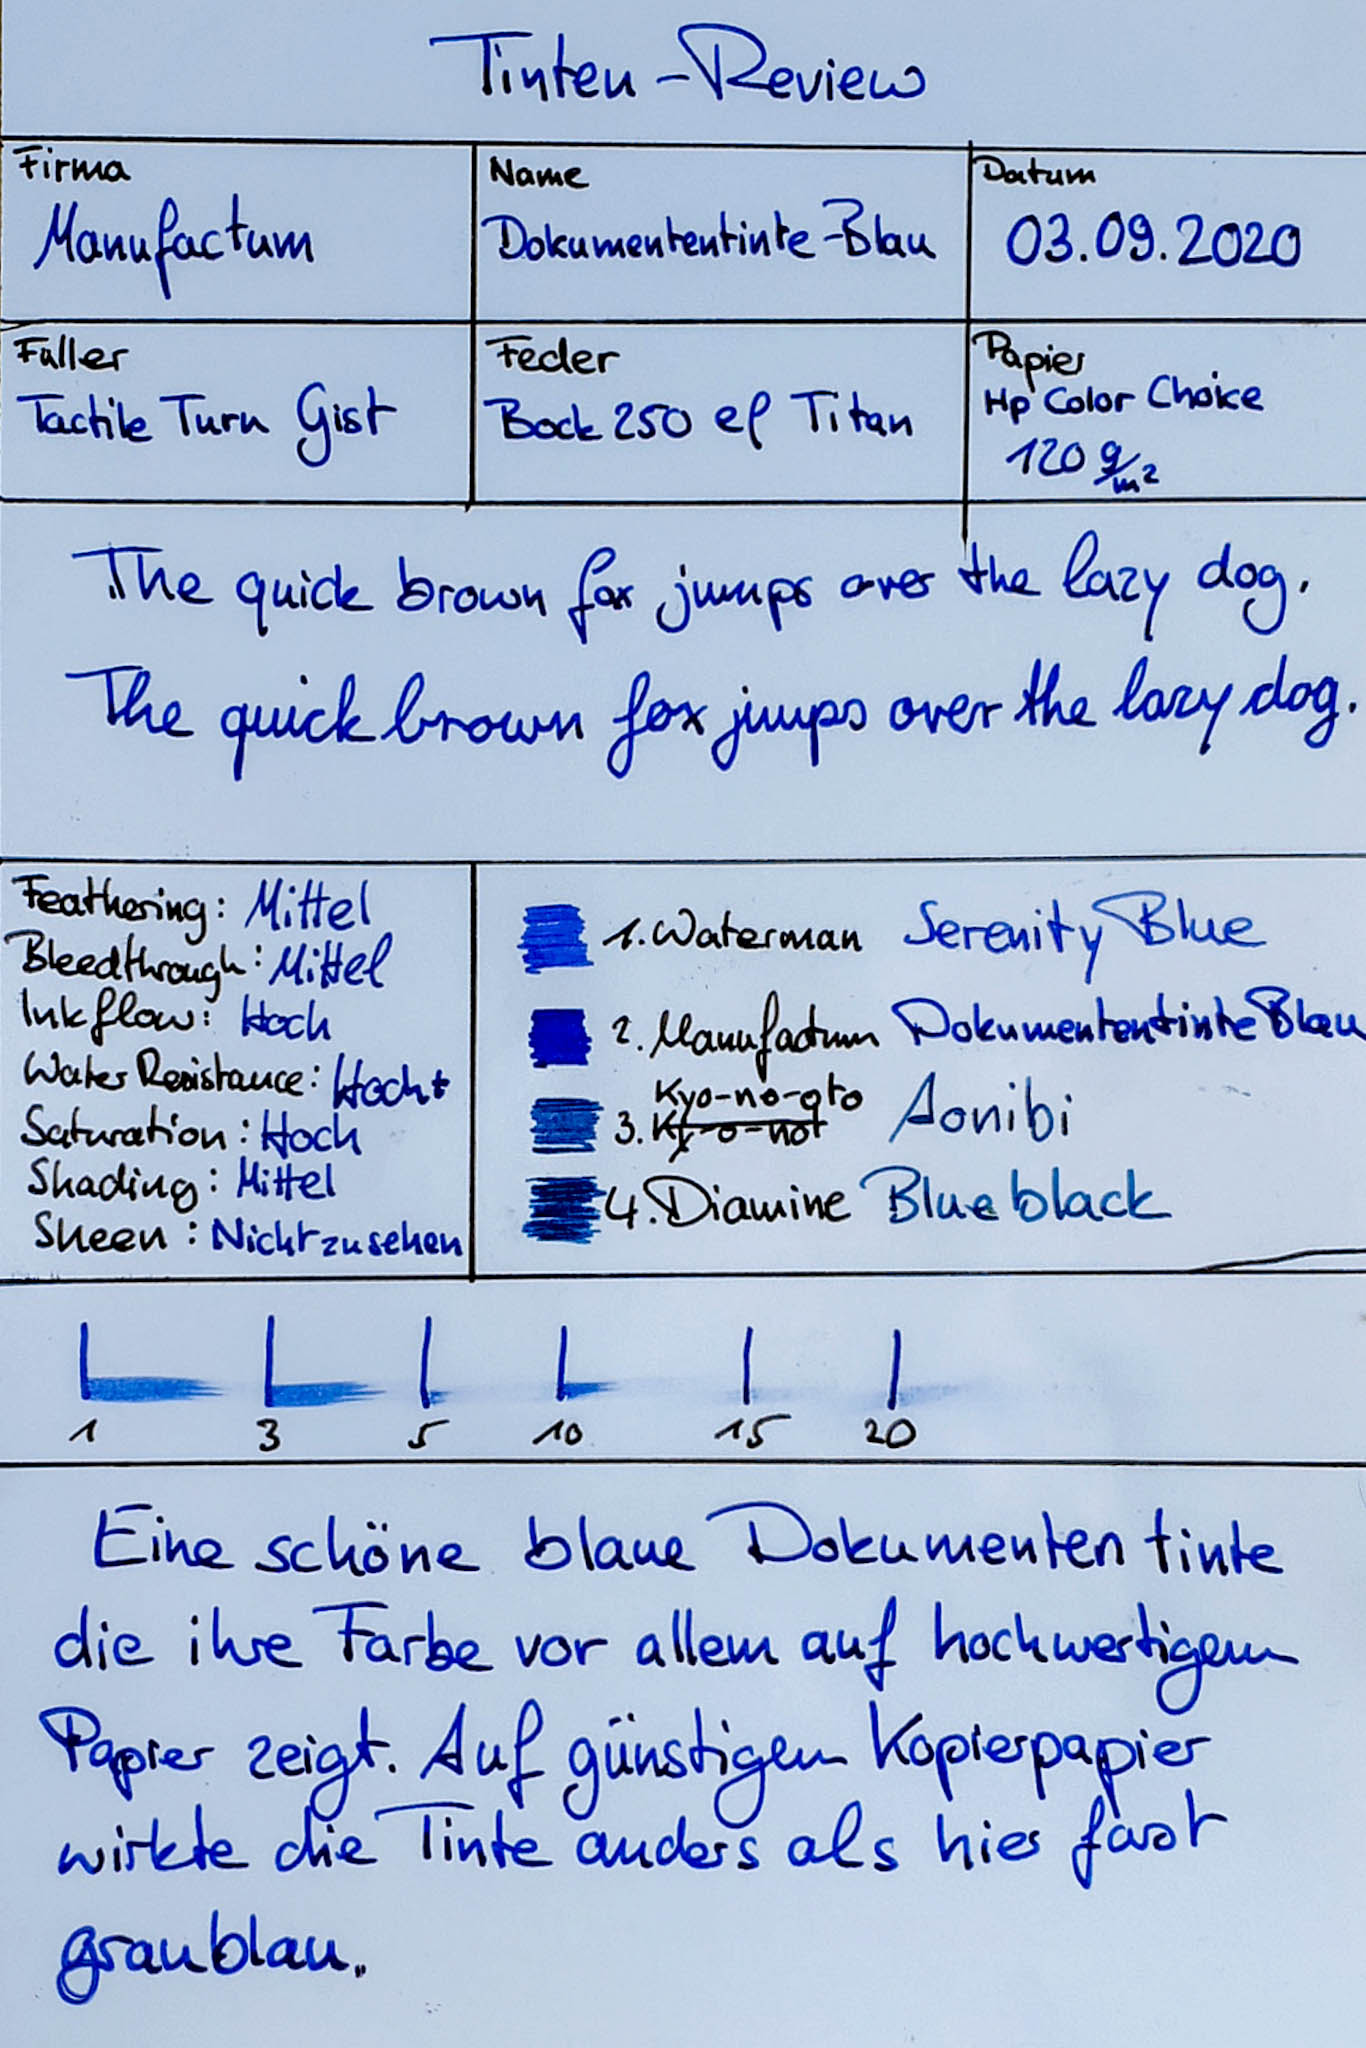 Tinten-Review
Firma
Manufactum
Name
Dokumententinte-Blau
Datum
03.09.2020
Füller
Tactile Turn Gist
Feder
Bock 250 ef Titan
Papier
Hp Color Choice
120 g/m²
The quick brown fox jumps over the lazy dog.
The quick brown fox jumps over the lazy dog.
Feathering: Mittel
Bleedthrough: Mittel
Inkflow: Hoch
Water Resistance: Hoch+
Saturation: Hoch
Shading: Mittel
Sheen: Nicht zu sehen
1. Waterman Serenity Blue
2. Manufactum Dokumententinte Blau
Kyo-no-oto
3. Ky-o-not Aonibi
4. Diamine Blueblack
1 3 5 10 15 20
Eine schöne blaue Dokumententinte
die ihre Farbe vor allem auf hochwertigem
Papier zeigt. Auf günstigem Kopierpapier
wirkte die Tinte anders als hier fast
graublau.